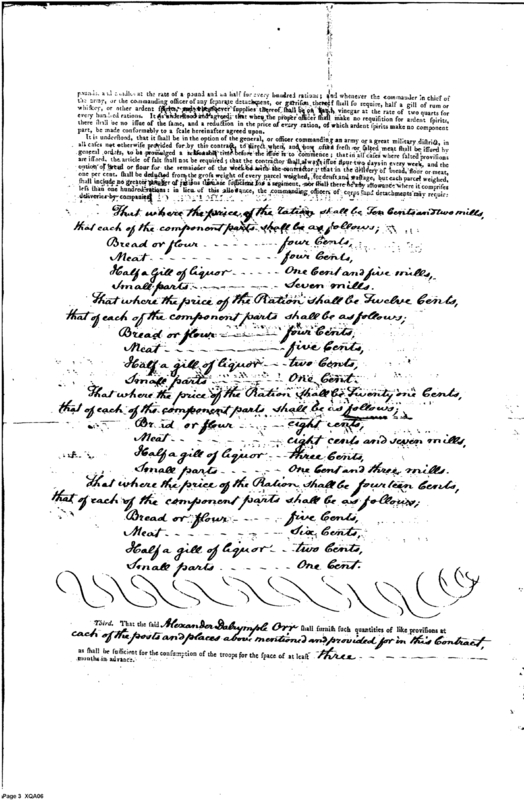 pounds and candles at the rate of a pound and an half for every hundred rations; and whenever the commander in chief of
the army, or the commanding officer of any separate detachment, or garrison thereof shall so require, half a gill of rum or
whiskey, or other ardent supplies thereof shall be on hand, vinegar at the rate of two quarts for
every hundred rations. It is understood and agreed, that when the proper officer shall make no requisition for ardent spirits,
there shall be no issue of the same, and a reduction in the price of every ration, of which ardent spirits make no component
part, be made conformably to a scale hereinafter agreed upon.
It is understood, that it shall be in the option of the general, or officer commanding an army or a great military district, in
all cases not otherwise provided for by this contract, to direct when, and how often fresh or salted meat shall be issued by
general orders, to be promulged a before the issue is to commence; that in all cases where salted provisions
are issued, the article of salt shall not be required; that the contractor shall always issue flour two days in every week, and the
option of bread or flour for the remainder of the week be with the contractor; that in the delivery of bread, flour or meat,
one per cent. shall be deducted from the gross weight of every parcel weighed, for draft and wastage, but each parcel weighed,
shall include no greater number of rations than are sufficient for a regiment, nor shall there be any allowance where it comprises
less than one hundred rations: in lieu of this allowance, the commanding officers of corps and detachments may require
deliveries by companies
That where the price of the Ration shall be Ten Cents and two mills,
that each of the component parts shall be as follows;
Bread or flour - - - - four Cents,
Meat - - - - four Cents,
Half a Gill of liquor - - One Cent and five mills,
Small parts - - - - Seven mills.
That where the price of the Ration shall be Twelve Cents,
that of each of the component parts shall be as follows;
Bread or flour - - - - four Cents,
Meat - - - - five Cents,
Half a gill of liquor - - two Cents,
Small parts - - - - One Cent.
That where the price of the Ration shall be Twenty one Cents,
that of each of the component parts shall be as follows;
Bread or flour - - - - eight cents,
Meat - - - - eight cents and seven mills,
Half a gill of liquor - - three Cents,
Small parts - - - - One Cent and three mills.
That where the price of the Ration shall be fourteen Cents,
that of each of the component parts shall be as follows;
Bread or flour - - - - five Cents,
Meat - - - - Six Cents,
Half a gill of liquor - - two Cents,
Small parts - - - - One Cent.
Third. That the said Alexander Dalrymple Orr shall furnish such quantities of like provisions at
each of the posts and places above mentioned and provided for in this Contract,
as shall be sufficient for the consumption of the troops for the space of at least three - - - -
months in advance.
Page 3 XQA06